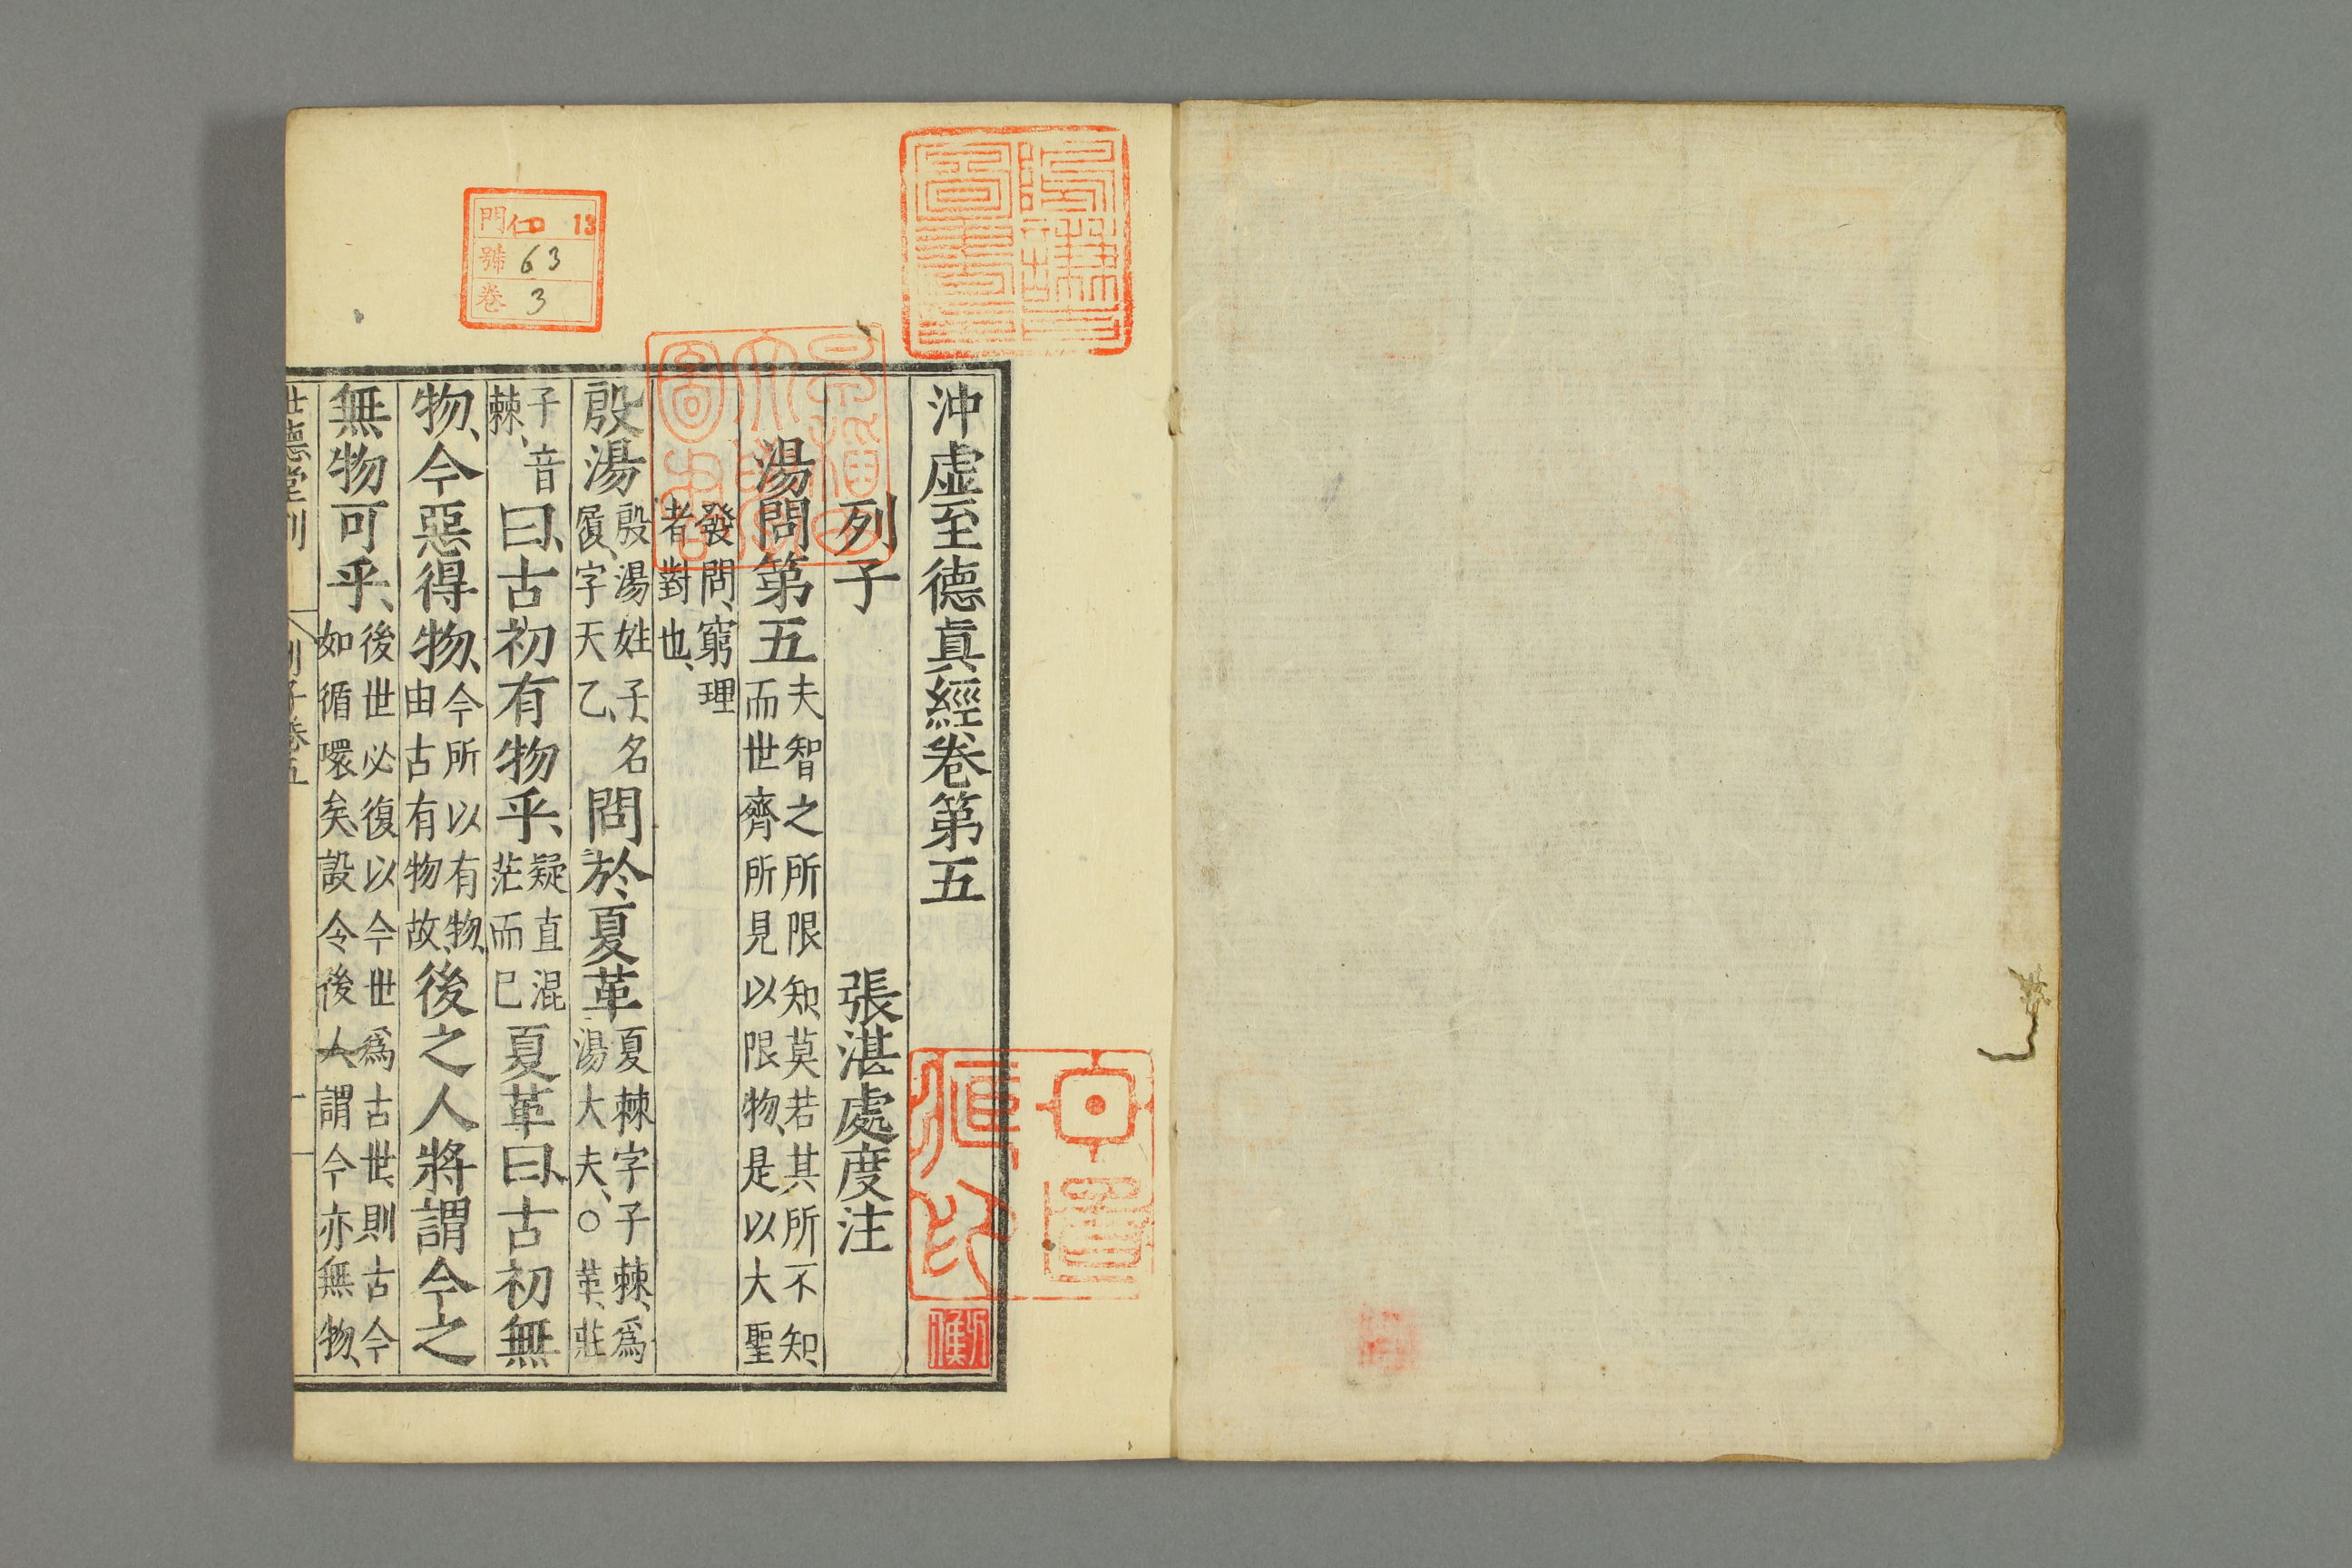 沖虛至德眞經卷第五
列子 張湛處度注
湯問第五 夫智之所限知莫若其所不知
而世齊所見以限物是以大聖
發問窮理
者對也
殷湯 殷湯姓子名
履字天乙
問於夏革 夏棘字子棘爲
湯大夫○革莊
子音
棘
曰古初有物乎 疑直混
茫而已
夏革曰古初無
物今惡得物 今所以有物
由古有物故
後之人將謂今之
無物可乎 後世必復以今世爲古世則古今
如循環矣設令後人謂今亦無物
世德堂刊 列子卷五 一
門 仁 13
號 63
卷 3